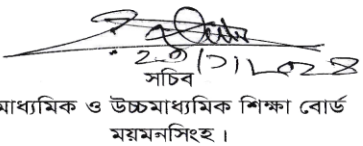 সচিব
মাধ্যমিক ও উচ্চমাধ্যমিক শিক্ষা বোর্ড
ময়মনসিংহ ।